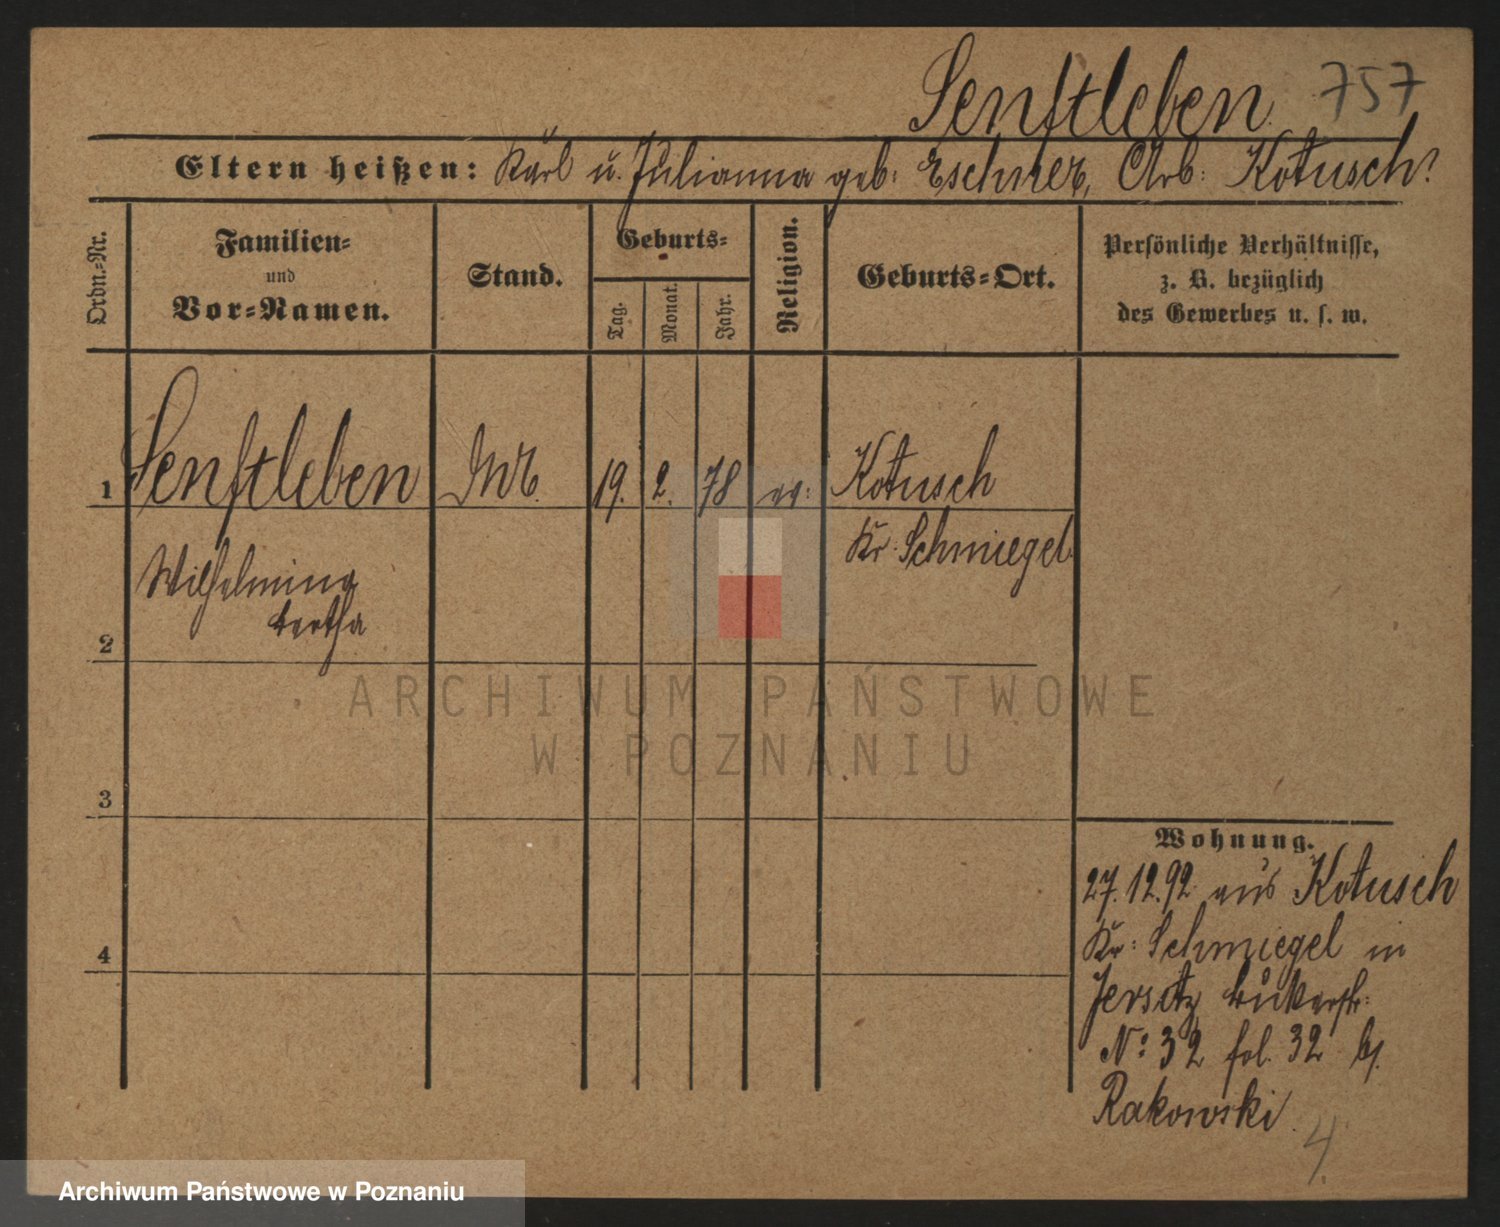 Senftleben 757
Eltern heißen: Karl u. Julianna geb: Eschner, Arb: Kotusch?
Ordn.-Nr.
Familien-
und
Vor-Namen.
Stand.
Geburts-
Tag.
Monat.
Jahr.
Religion.
Geburts-Ort.
Persönliche Verhältnisse,
z. B. bezüglich
des Gewerbes u. s. w.
1 Senftleben 19. 2. 78 ev: Kotusch
Kr: Schmiegel
Wilhelmina
Bertha
2
ARCHIWUM PAŃSTWOWE
W POZNANIU
3
Wohnung.
27.12.92 aus Kotusch
Kr: Schmiegel in
Jersitz Bukerstr:
4
No: 32 fol. 32 b/.
Rakowski
4
Archiwum Państwowe w Poznaniu